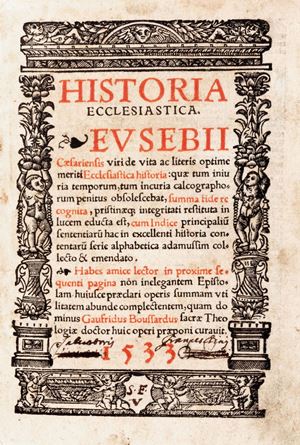 HISTORIA
ECCLESIASTICA.
EVSEBII
Cæsariensis viri de vita ac literis optime
meriti Ecclesiastica historia: quæ tum iniu
ria temporum, tum incuria calcographo-
rum penitus obsolescebat, summa fide re
cognita, pristinæq; integritati restituta in
lucem educta est, cum Indice principaliū
sententiarū hac in excellenti historia con
tentarū serie alphabetica adamussim col
lecto & emendato.
Habes amice lector in proxime se
quenti pagina non inelegantem Episto
lam huiusce præclari operis summam vti
litatem abunde complectentem, quam do
minus Gaufridus Boussardus sacræ Theo
logiæ doctor huic operi præponi curauit.
1533
S. F.
V